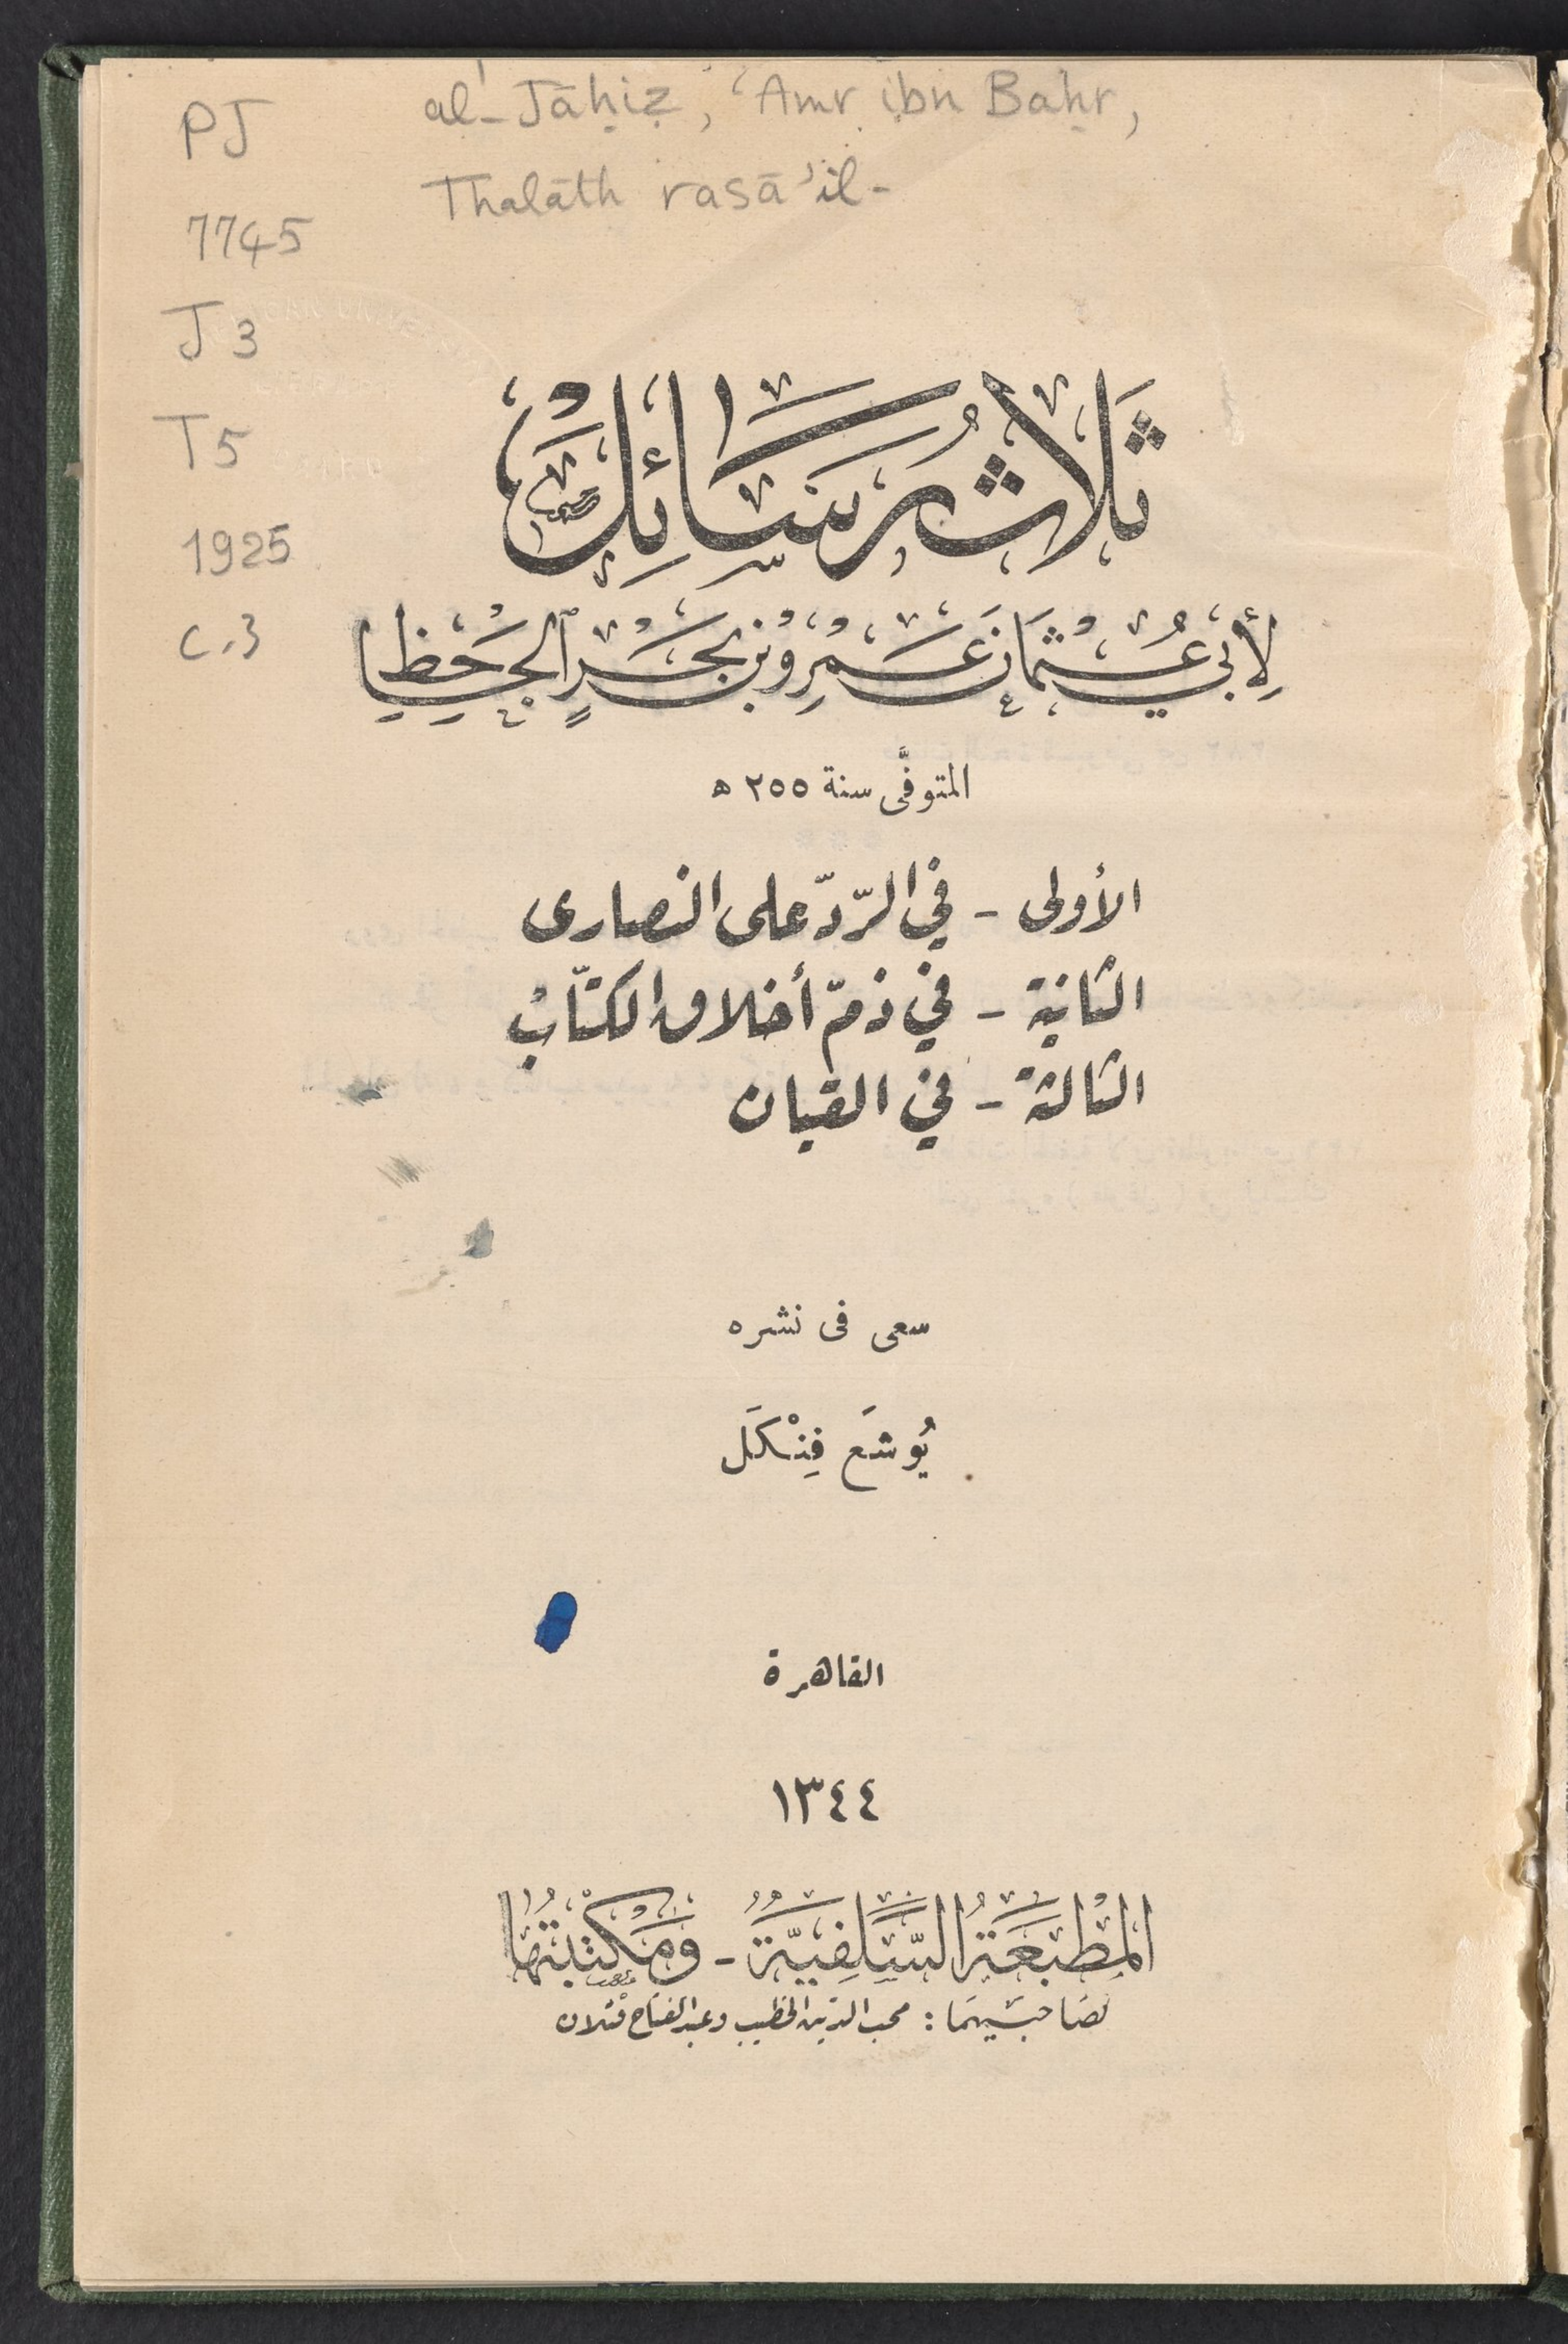 PJ
7745
J3
T5
1925
c.3
al-Jāḥiẓ, ʿAmr ibn Baḥr,
Thalāth rasāʾil-
ثَلَاثُ رَسَائِلَ
لِأَبِي عُثْمَانَ عَمْرِو بْنِ بَحْرٍ الْجَاحِظِ
المتوفَّى سنة ٢٥٥ ه
الأولى - في الرّدّ على النصارى
الثانية - في ذمّ أخلاق الكتّاب
الثالثة - في القيان
سعى فى نشره
يُوشَع فِنْكَل
القاهرة
١٣٤٤
المَطْبَعَةُ السَّلَفِيَّةُ - وَمَكْتَبَتُهَا
لصَاحبَيهمَا : محب الدين الخطيب وعبد الفتاح قتلان